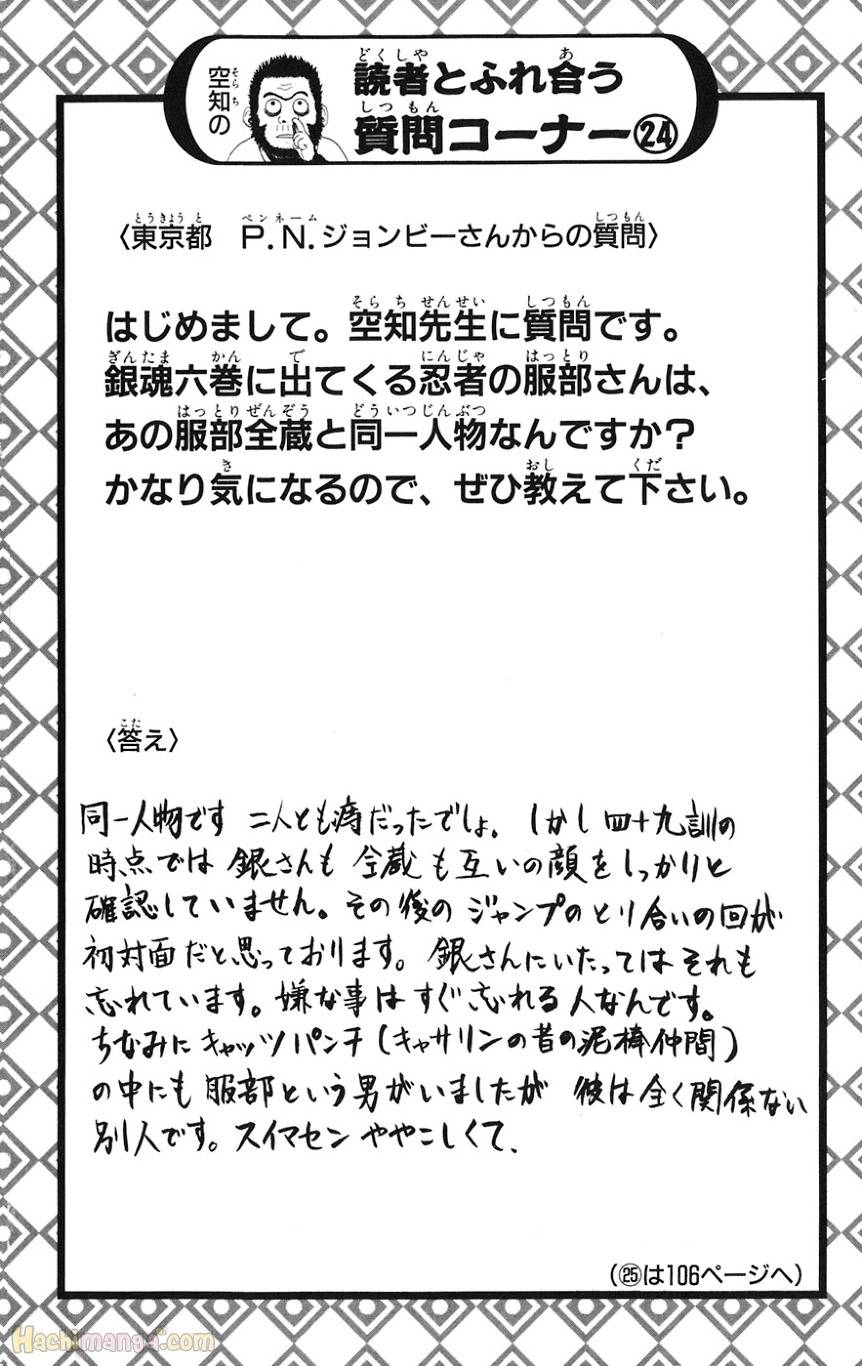 空知の
読者とふれ合う
質問コーナー㉔
〈東京都　P.N.ジョンビーさんからの質問〉
はじめまして。空知先生に質問です。
銀魂六巻に出てくる忍者の服部さんは、
あの服部全蔵と同一人物なんですか?
かなり気になるので、ぜひ教えて下さい。
〈答え〉
同一人物です 二人とも痔だったでしょ。しかし四十九訓の
時点では 銀さんも 全蔵も互いの顔をしっかりと
確認していません。その後の ジャンプのとり合いの回が
初対面だと思っております。銀さんにいたってはそれも
忘れています。嫌な事は すぐ忘れる人なんです。
ちなみに キャッツパンチ(キャサリンの昔の泥棒仲間)
の中にも 服部という男がいましたが 彼は全く関係ない
別人です。スイマセン ややこしくて、
(㉕は106ページへ)
Hachimanga.com